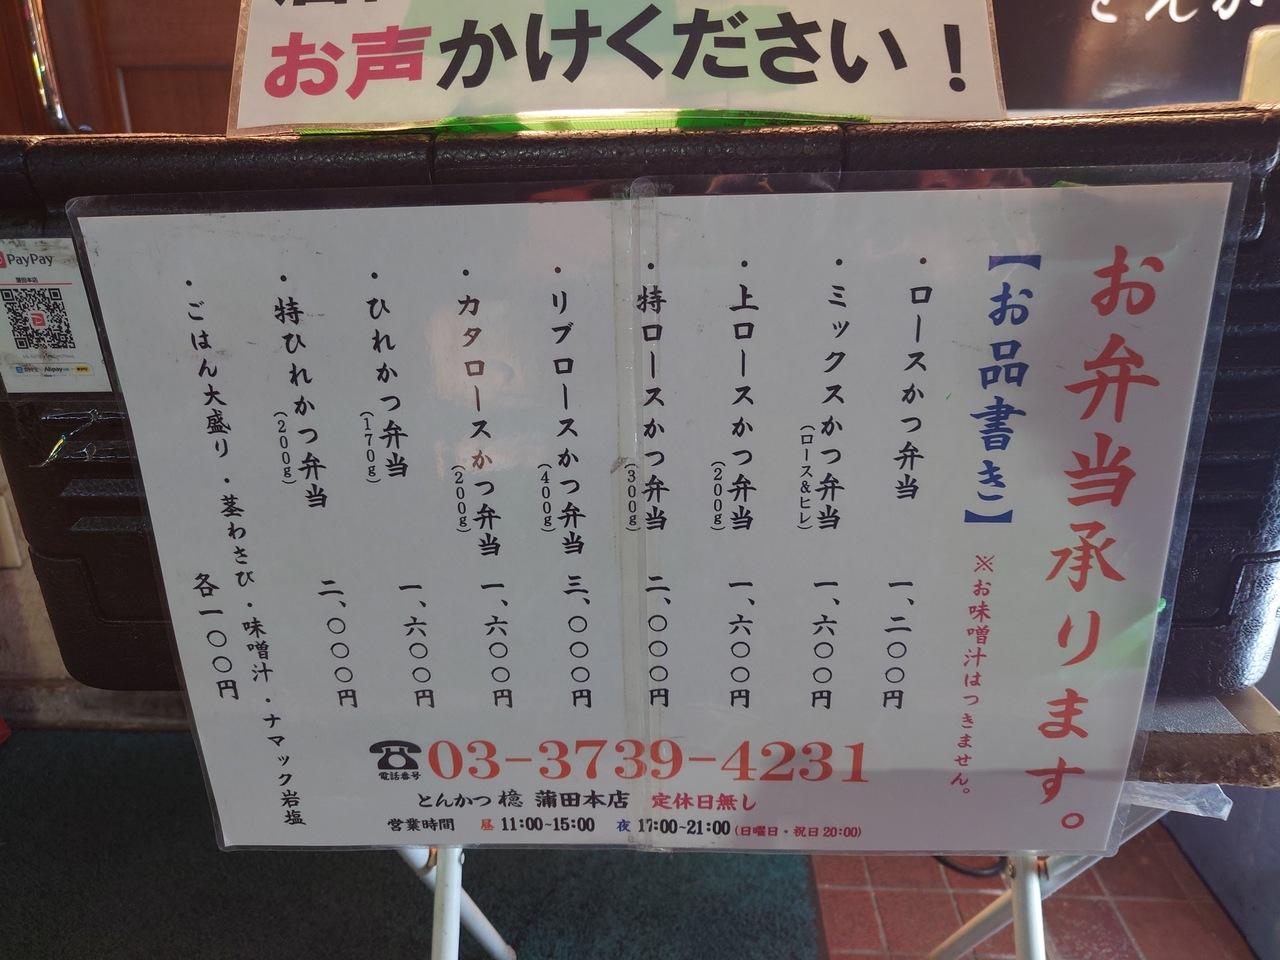 お声かけください！
とんか
PayPay
蒲田本店
お弁当承ります。
【お品書き】
※お味噌汁はつきません。
・ロースかつ弁当 一、二〇〇円
・ミックスかつ弁当(ロース&ヒレ) 一、六〇〇円
・上ロースかつ弁当(200g) 一、六〇〇円
・特ロースかつ弁当(300g) 二、〇〇〇円
・リブロースかつ弁当(400g) 三、〇〇〇円
・カタロースかつ弁当(200g) 一、六〇〇円
・ひれかつ弁当(170g) 一、六〇〇円
・特ひれかつ弁当(200g) 二、〇〇〇円
・ごはん大盛り・茎わさび・味噌汁・ナマック岩塩
各一〇〇円
電話番号 03-3739-4231
とんかつ 檍 蒲田本店 定休日無し
営業時間 昼 11:00~15:00 夜 17:00~21:00 (日曜日・祝日 20:00)